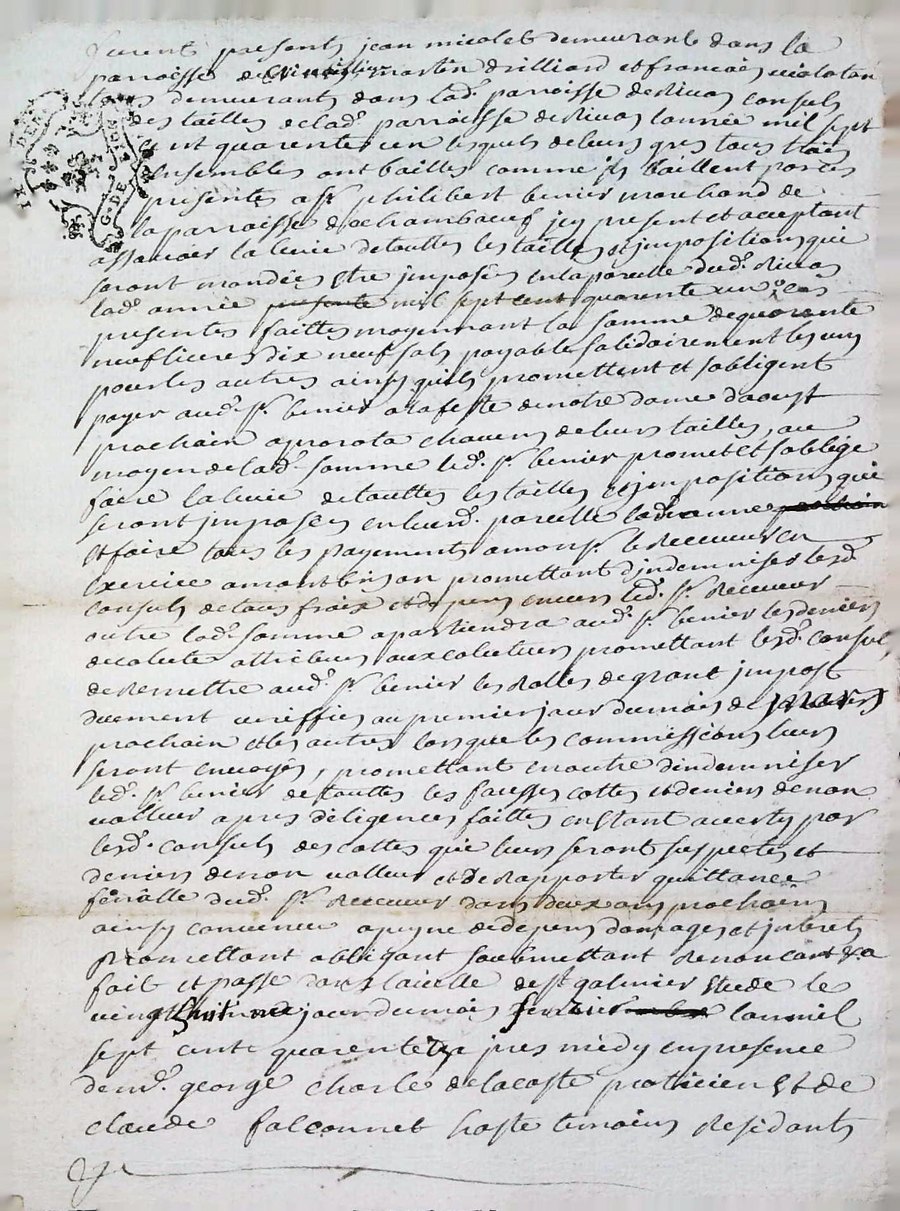 furent presents jean micolet demeurants dans la
parroisse de martin drilliard et francois violotan
tous demeurants dans lad. parroisse de Rivas consuls
des tailles de lad. parroisse de Rivas lannée mil sept
cent quarente un lesquels de leurs gres tous trois
ensembles ont bailles comme ils baillent par ces
presentes a sr. philibert benier marchand de
la parroisse de chambœuf jcy present et acceptant
assavoir la levie de touttes les tailles et jmpositions qui
seront mandées etre jmposés en la parcelle dud. Rivas
lad. année presente mil sept cent quarente un ces
presentes faittes moyennant la somme de quarente
neuf livres dix neuf sols payable solidairement les uns
pour les autres ainsy quils promettent et sobligent
payer aud. sr. benier a la feste de notre dame d'aoust
prochain a prorota chacuns de leurs tailles, au
moyen de lad. somme led. sr. benier promet et soblige
faire la levie de touttes les tailles et jmpositions qui
seront jmposées en leurd. parcelle lad. année
et faire tous les payements a mons. le Receveur en
exercice a montbrison promettant d'jndemniser lesd.
consuls de tous fraix et depens envers led. sr. Receveur
outre lad. somme apartiendra aud. sr. benier les deniers
de colecte attribues aux colecteurs promettant lesd. consuls
de Remettre aud. sr. benier les Rolles de grant jmpost
duement veriffies au premier jour du mois de mars
prochain et les autres lorsque les commissions leurs
seront envoyés, promettant en outre d'indemniser
led. sr. benier de touttes les fausses cottes et deniers de non
valleur apres diligences faittes enstant averty par
lesd. consuls des cottes que leurs seront suspectes et
deniers de non valleur et de Rapporter quittance
finalle dud. sr. Receveur dans deux ans prochains
ainsy convenu a peyne de depens domages et jnterets
Promettant obligant soubmettant Renoncant &a
fait et passé dans la ville de st galmier Etude le
vingt huit jour du mois fevrier lan mil
sept cent quarente un apres midy en presence
de mr. george charle delacoste praticien Et de
claude falconnet hoste temoins Residants